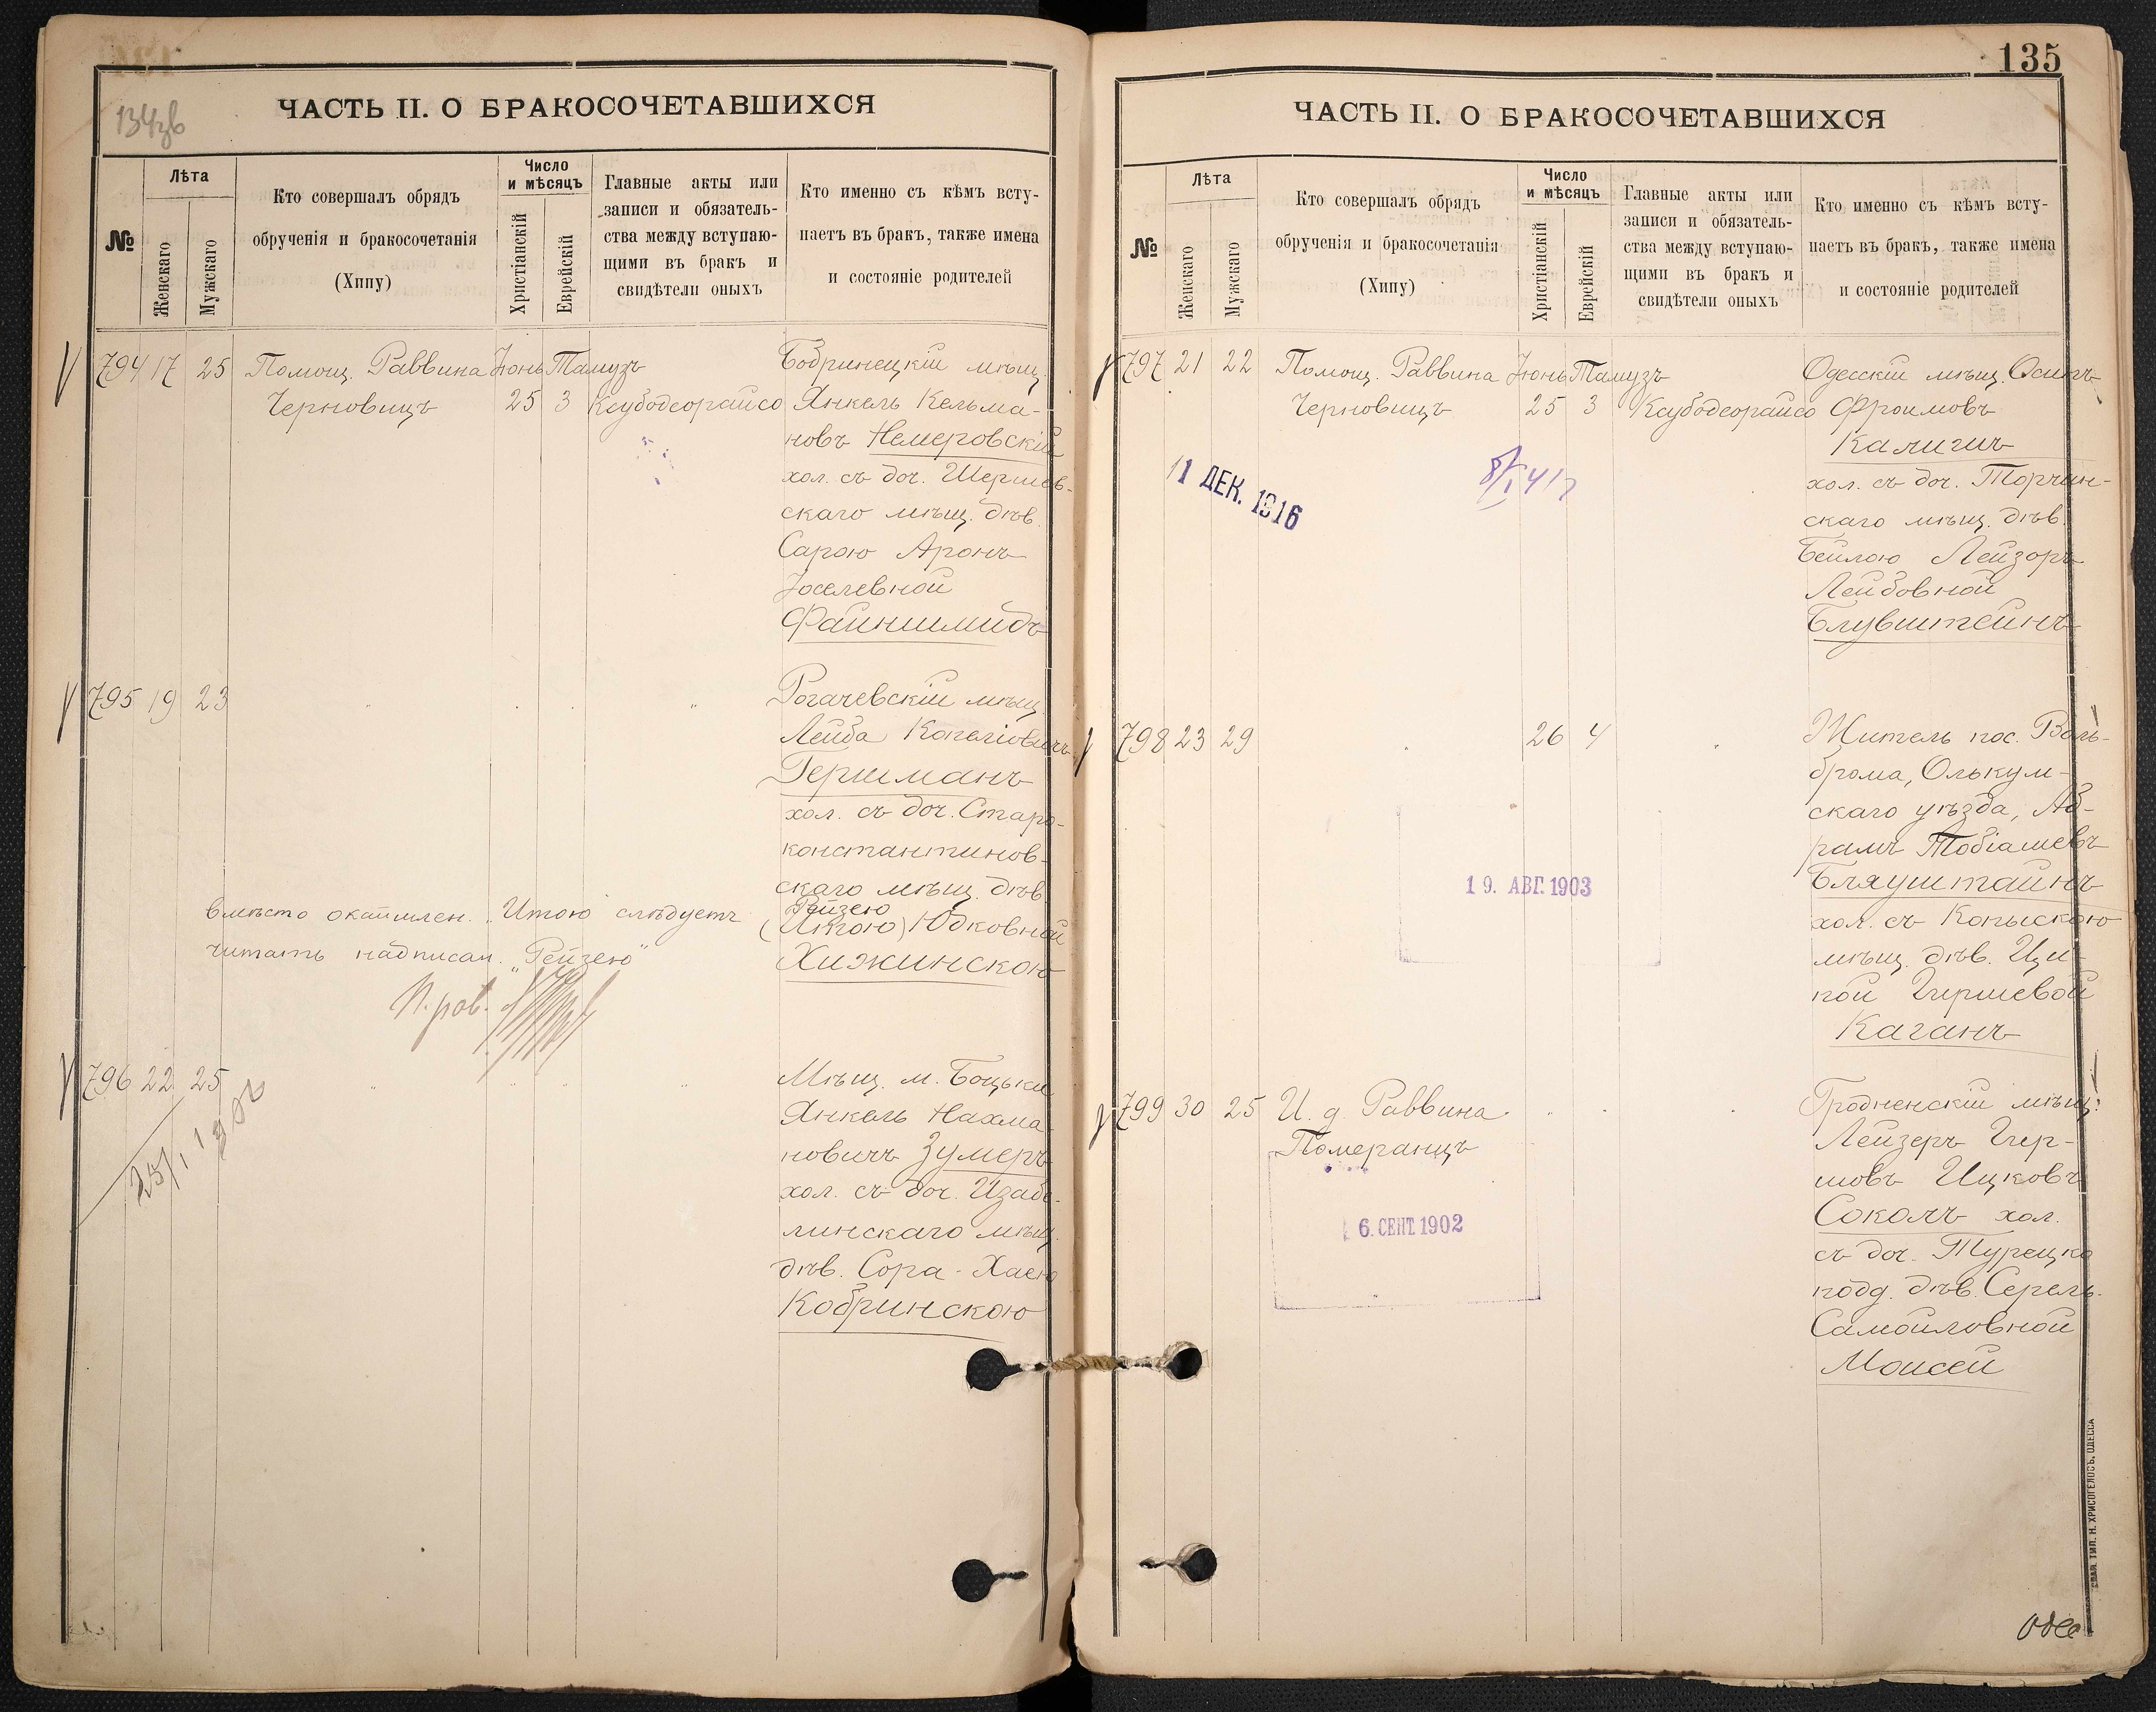 134зв
ЧАСТЬ II. О БРАКОСОЧЕТАВШИХСЯ
№
Лѣта
Женскаго
Мужскаго
Кто совершалъ обрядъ
обрученія и бракосочетанія
(Хипу)
Число
и мѣсяцъ
Христіанскій
Еврейскій
Главные акты или
записи и обязатель-
ства между вступаю-
щими въ бракъ и
свидѣтели оныхъ
Кто именно съ кѣмъ всту-
паетъ въ бракъ, также имена
и состояніе родителей
794 17 25 Помощ. Раввина Іюнь Тамузъ
Черновицъ 25 3 Ксубодеорайсо
Бобринецкій мѣщ.
Янкель Кельма-
новъ Немеровскій
хол. съ доч. Шершев-
скаго мѣщ. дѣв.
Сарою Аронъ
Іоселевной
Файншмидъ
795 19 23
Рогачевскій мѣщ.
Лейба
Гершманъ
хол. съ доч. Старо-
константинов-
скаго мѣщ. дѣв.
Рейзею
(Итою) Юдковной
Хижинскою
вмѣсто окаймлен. "Итою" слѣдуетъ
читать надписан. "Рейзею"
П. рав.
796 22 25
Мѣщ. м. Боцьки
Янкель Нахма-
новичъ Зумеръ
хол. съ доч. Изабе-
линскаго мѣщ.
дѣв. Сора-Хаею
Кобринскою
135
ЧАСТЬ II. О БРАКОСОЧЕТАВШИХСЯ
№
Лѣта
Женскаго
Мужскаго
Кто совершалъ обрядъ
обрученія и бракосочетанія
(Хипу)
Число
и мѣсяцъ
Христіанскій
Еврейскій
Главные акты или
записи и обязатель-
ства между вступаю-
щими въ бракъ и
свидѣтели оныхъ
Кто именно съ кѣмъ всту-
паетъ въ бракъ, также имена
и состояніе родителей
797 21 22 Помощ. Раввина Іюнь Тамузъ
Черновицъ 25 3 Ксубодеорайсо
Одесскій мѣщ. Осипъ
Фроимовъ
Калигинъ
хол. съ доч. Торчин-
скаго мѣщ. дѣв.
Бейлою Лейзоръ
Лейбовной
Блувштейнъ
11 ДЕК. 1916
798 23 29 26 4
Житель пос. Воль-
брома, Олькум-
скаго уѣзда, Аб-
рамъ Тобіашевъ
Бляуштайнъ
хол. съ Копыскою
мѣщ. дѣв. Ци-
пой Гиршевой
Каганъ
19. АВГ. 1903
799 30 25 И. д. Раввина
Померанцъ
Гродненскій мѣщ.
Лейзеръ Гир-
шовъ Ицковъ
Соколъ хол.
съ доч. Турецко
подд. дѣв. Серель
Самойловной
Моисей
6. СЕНТ. 1902
СЛАВ. ТИП. Н. ХРИСОГЕЛОСЪ, ОДЕССА